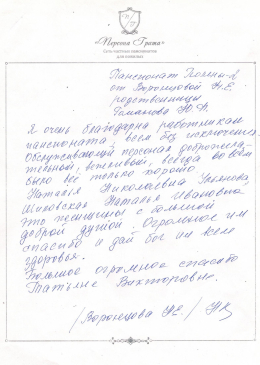 «Персона Грата»
Пансионат
от Воронцовой Н.Е.
родственницы
Романова Ю.А.
Я очень благодарна работникам
пансионата, всем без исключения.
Обслуживающий персонал доброжела-
тельный, вежливый, всегда во всем
было все только хорошо.
Наталья Николаевна Ульянова,
Наталья Ивановна
это женщины с большой
доброй душой. Огромное им
спасибо и дай бог им всем
здоровья.
Большое огромное спасибо
Татьяне Викторовне.
/Воронцова НЕ/